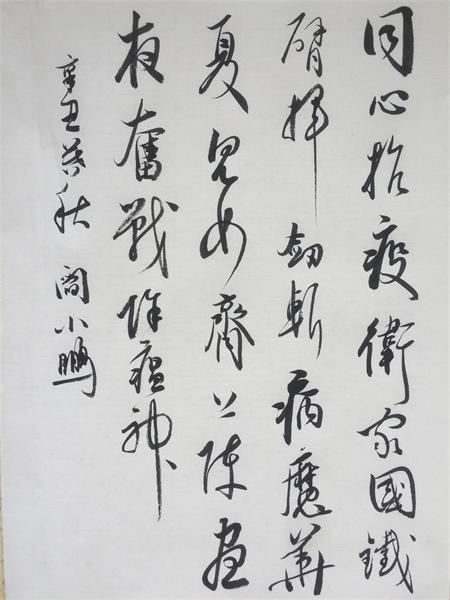 同心抗疫衛家國鐵
臂揮劍斬病魔華
夏兒女齊上陣昼
夜奮戰除瘟神
辛丑秋 閻小鵬